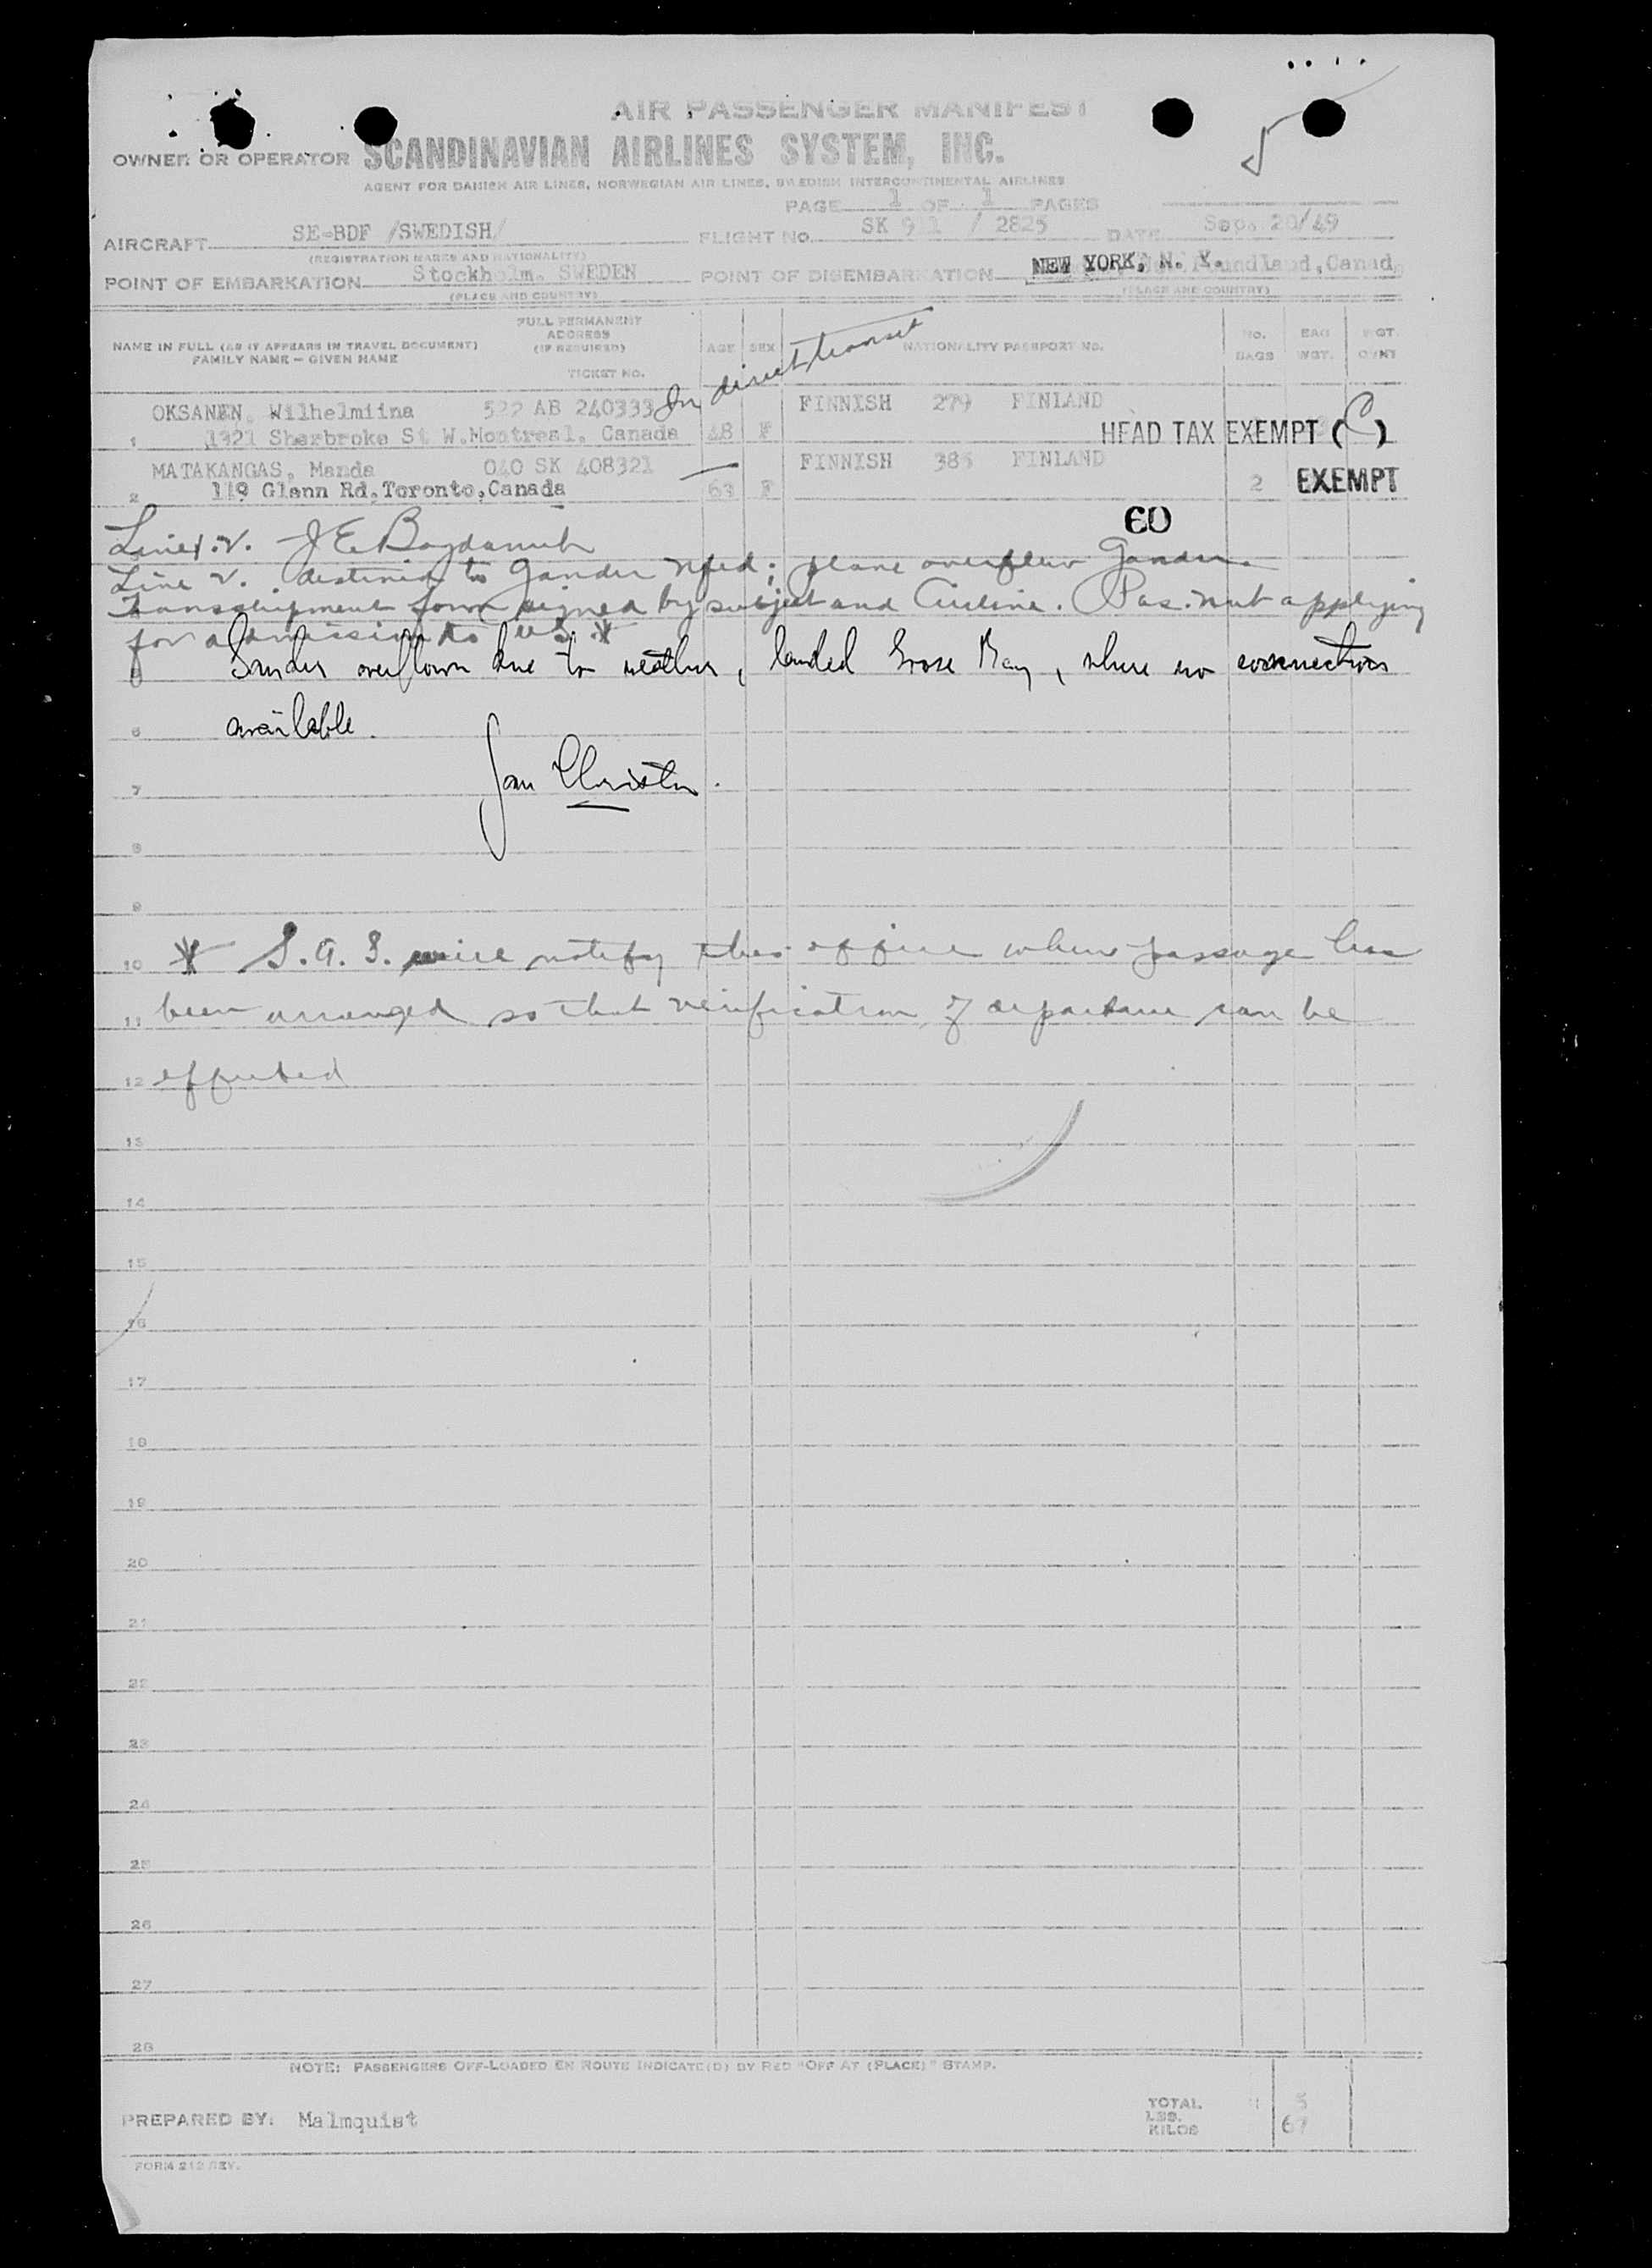 AIR PASSENGER MANIFEST
OWNER OR OPERATOR SCANDINAVIAN AIRLINES SYSTEM, INC.
AGENT FOR DANISH AIR LINES, NORWEGIAN AIR LINES, SWEDISH INTERCONTINENTAL AIRLINES
PAGE 1 OF 1 PAGES
AIRCRAFT SE-BDF /SWEDISH/ FLIGHT NO. SK 911 / 2825 DATE Sep. 20/49
(REGISTRATION MARKS AND NATIONALITY)
POINT OF EMBARKATION Stockholm. SWEDEN POINT OF DISEMBARKATION NEW YORK, N. Y. Canada
(PLACE AND COUNTRY) (PLACE AND COUNTRY)
NAME IN FULL (AS IT APPEARS IN TRAVEL DOCUMENT) FAMILY NAME – GIVEN NAME
FULL PERMANENT ADDRESS (IF REQUIRED) TICKET NO.
AGE SEX NATIONALITY PASSPORT NO. NO. BAGS BAG WGT.
In direct transit
OKSANEN, Wilhelmiina 522 AB 240333 FINNISH 279 FINLAND
1 1321 Sherbroke St W.Montreal, Canada 48 F HEAD TAX EXEMPT (C)
MATAKANGAS, Manda 040 SK 408321 FINNISH FINLAND
2 119 Glenn Rd.Toronto,Canada 63 F 2 EXEMPT
60
Line 1. v. J E
Line v. destined to Gander Nfld; plane overflew Gander.
Transshipment form signed by subject and Airline. Pas. not applying
for admission to US. *
Gander overflown due to weather, landed Goose Bay, where no connections
6 available.
7 Jan
8
9
10 * S.A.S. will notify this office when passage has
11 been arranged so that verification of departure can be
12 effected
13
14
15
16
17
18
19
20
21
22
23
24
25
26
27
28
NOTE: PASSENGERS OFF-LOADED EN ROUTE INDICATE(D) BY RED "OFF AT (PLACE)" STAMP.
PREPARED BY: Malmquist
TOTAL 5
LBS.
KILOS 67
FORM 212 REV.